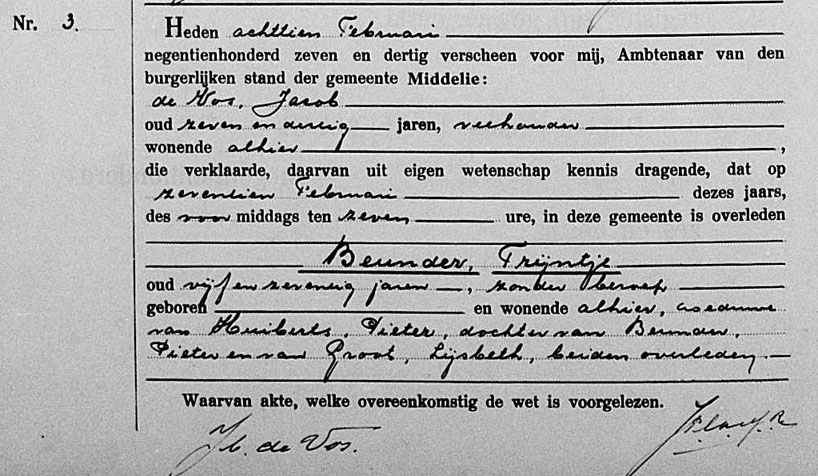 Nr. 3.
Heden achttien Februari
negentienhonderd zeven en dertig verscheen voor mij, Ambtenaar van den
burgerlijken stand der gemeente Middelie:
de Vos, Jacob
oud zeven en dertig jaren, veehouder
wonende alhier,
die verklaarde, daarvan uit eigen wetenschap kennis dragende, dat op
zeventien Februari dezes jaars,
des voor middags ten zeven ure, in deze gemeente is overleden
Beunder, Trijntje
oud vijf en zeventig jaren, zonder beroep
geboren en wonende alhier, weduwe
van Huiberts, Pieter, dochter van Beunder,
Pieter en van Groot, Lijsbeth, beiden overleden.
Waarvan akte, welke overeenkomstig de wet is voorgelezen.
Jb. de Vos.